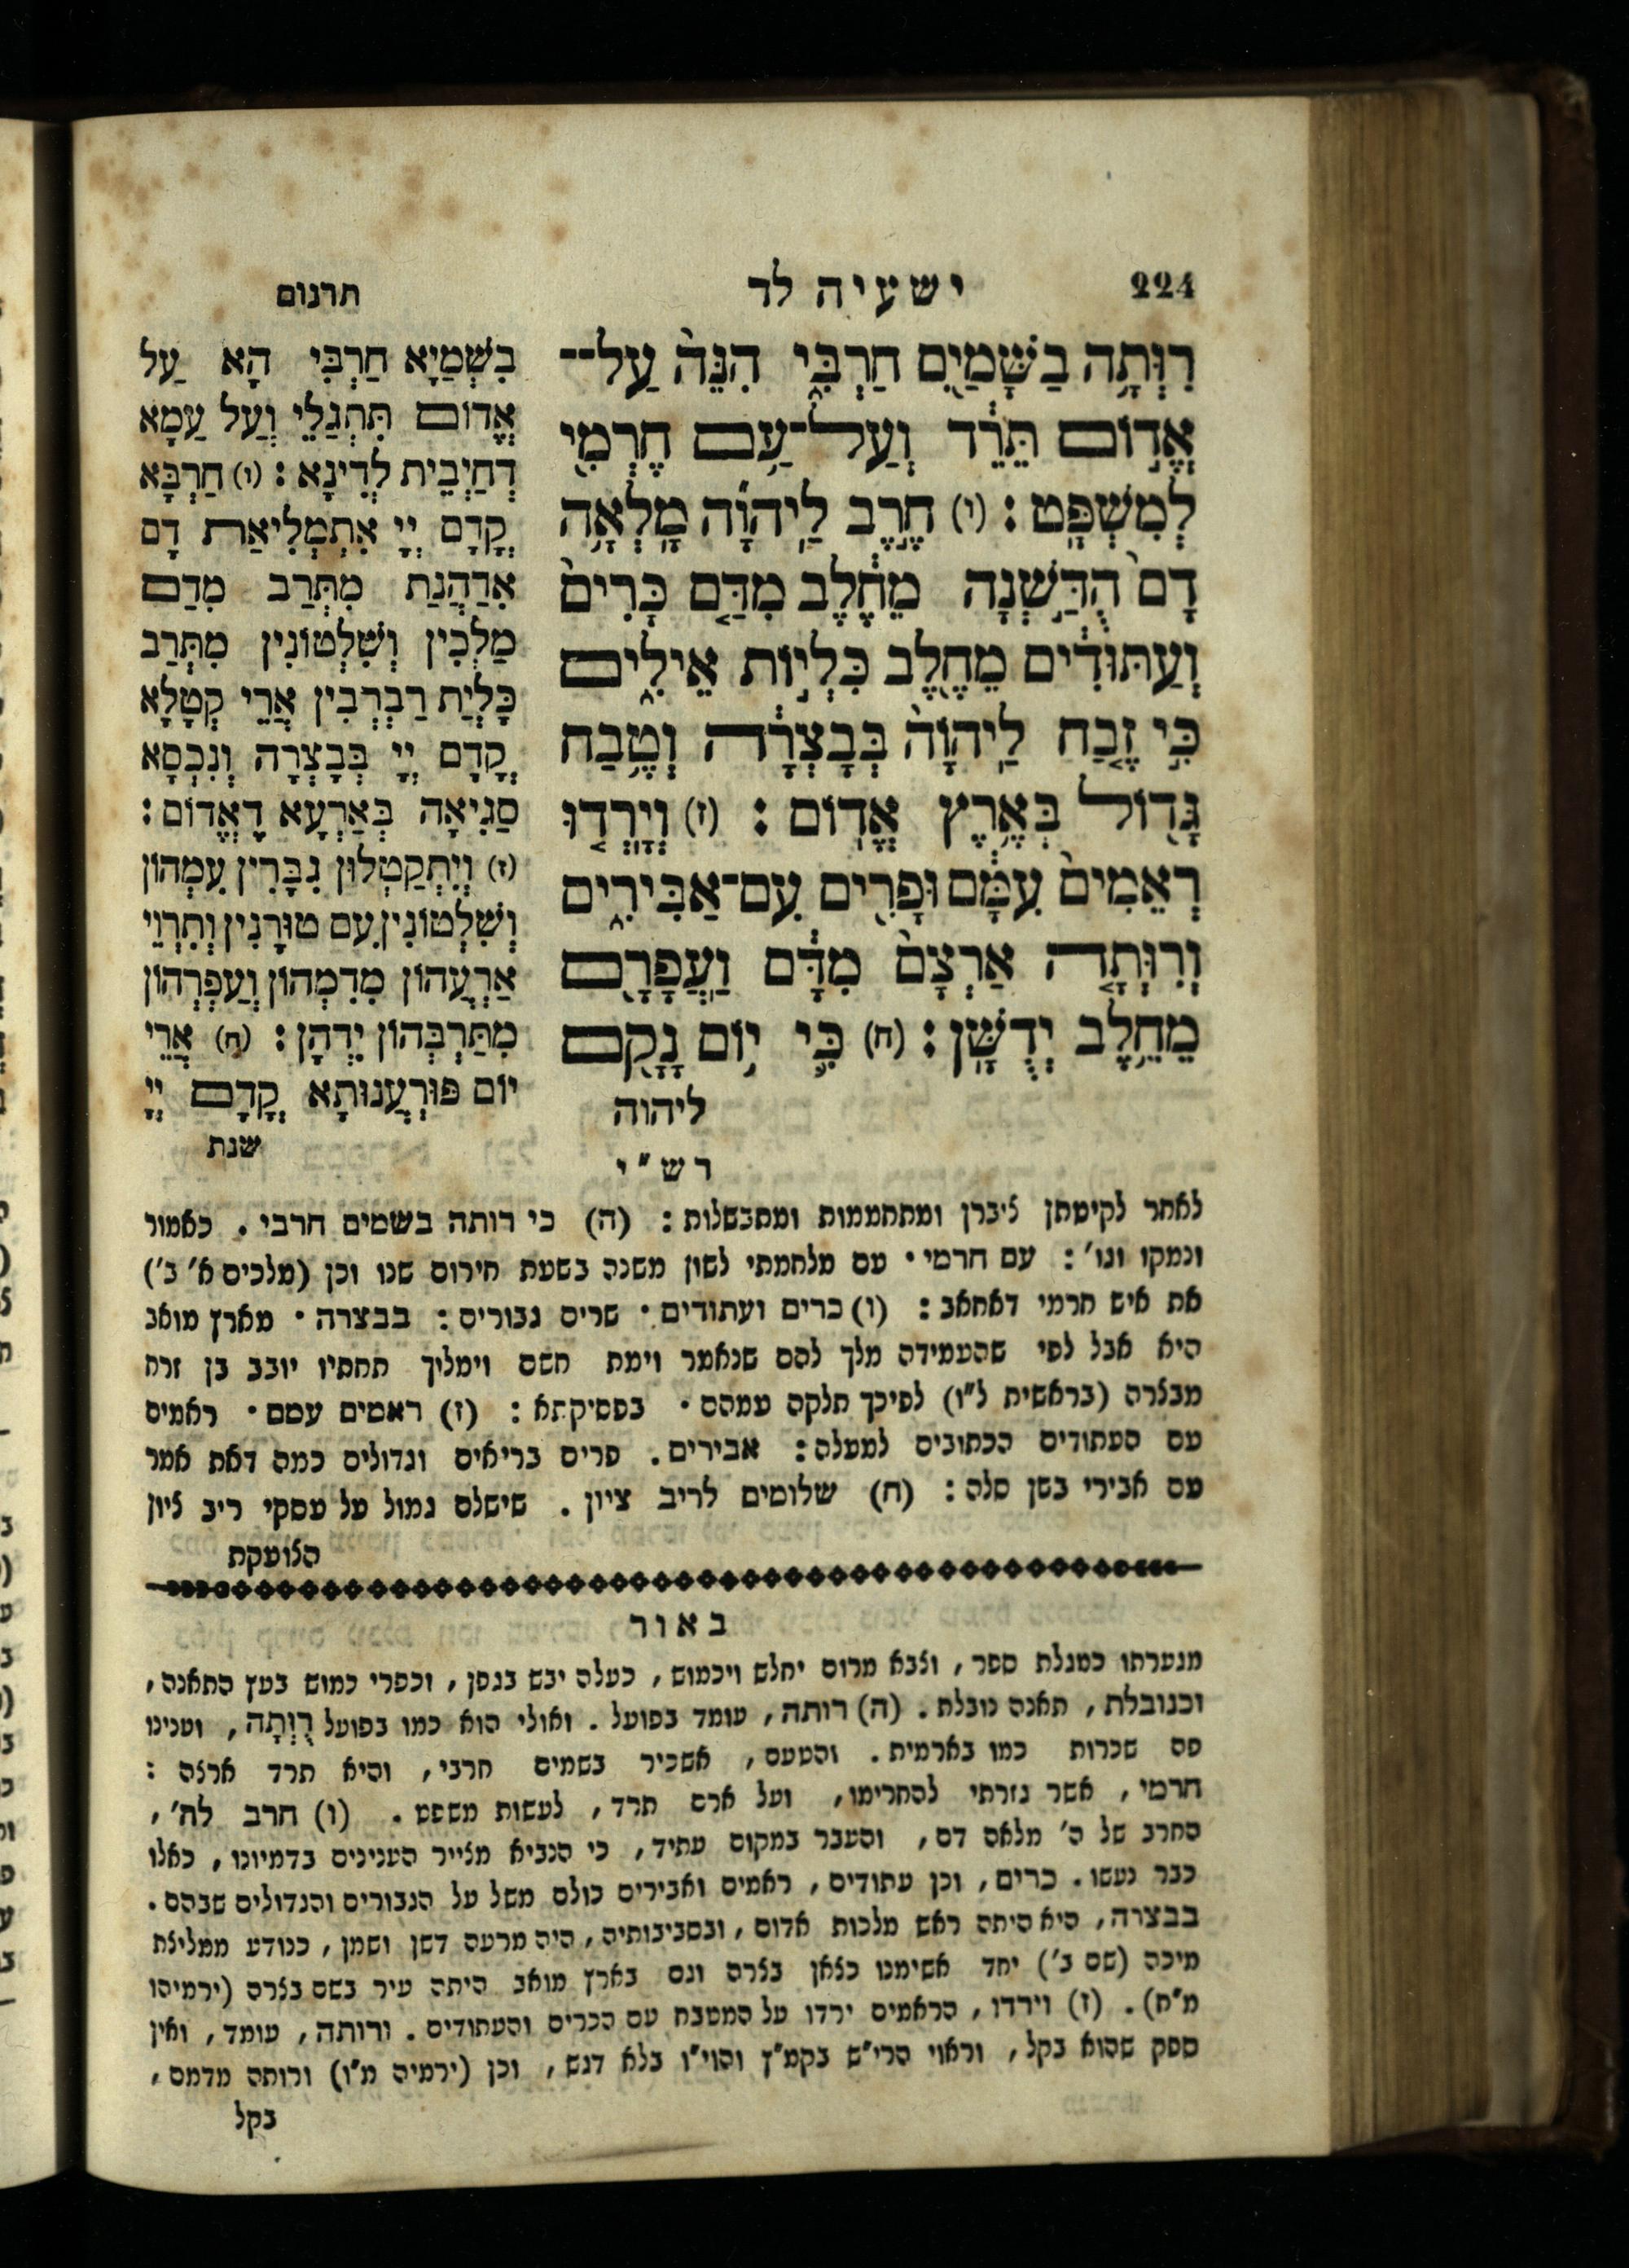 224
ישעיה לד
תרגום
רִוְּתָ֥ה בַשָּׁמַ֖יִם חַרְבִּ֑י הִנֵּה֙ עַל־
אֱד֣וֹם תֵּרֵ֔ד וְעַל־עַ֥ם חֶרְמִ֖י
לְמִשְׁפָּֽט׃ (ו) חֶ֣רֶב לַיהוָ֞ה מָלְאָ֥ה
דָם֙ הֻדַּ֣שְׁנָה מֵחֵ֔לֶב מִדַּ֤ם כָּרִים֙
וְעַתּוּדִ֔ים מֵחֵ֖לֶב כִּלְי֣וֹת אֵילִ֑ים
כִּ֣י זֶ֤בַח לַֽיהוָה֙ בְּבָצְרָ֔ה וְטֶ֥בַח
גָּד֖וֹל בְּאֶ֥רֶץ אֱדֽוֹם׃ (ז) וְיָרְד֤וּ
רְאֵמִים֙ עִמָּ֔ם וּפָרִ֖ים עִם־אַבִּירִ֑ים
וְרִוְּתָ֤ה אַרְצָם֙ מִדָּ֔ם וַעֲפָרָ֖ם
מֵחֵ֥לֶב יְדֻשָּֽׁן׃ (ח) כִּ֛י י֥וֹם נָקָ֖ם
ליהוה
בִשְׁמַיָא חַרְבִּי הָא עַל
אֱדוֹם תִּתְגַלֵי וְעַל עַמָא
דְחַיְבֵית לְדִינָא׃ (ו) חַרְבָּא
קֳדָם יְיָ אִתְמְלִיאַת דָם
אִדַהֲנַת מִתְּרַב מִדַם
מַלְכִין וְשִׁלְטוֹנִין מִתְּרַב
כָּלְיַת רַבְרְבִין אֲרֵי קְטָלָא
קֳדָם יְיָ בְּבָצְרָה וְנִכְסָא
סַגִיאָה בְּאַרְעָא דֶאֱדוֹם׃
(ז) וְיִתְקַטְלוּן גִבָּרִין עִמְהוֹן
וְשִׁלְטוֹנִין עִם טוּרָנִין וְתִרְוֵי
אַרְעֲהוֹן מִדִמְהוֹן וְעַפְרְהוֹן
מִתַּרְבְּהוֹן יִדְהָן׃ (ח) אֲרֵי
יוֹם פּוּרְעָנוּתָא קֳדָם יְיָ
שנת
רש"י
לאחר לקיטתן ליברן ומתחממות ומתבשלות: (ה) כי רותה בשמים חרבי. כאמור
ונמקו וגו': עם חרמי• עם מלחמתי לשון משנה בשעת חירום שנו וכן (מלכים א' כ')
את איש חרמי דאחאב: (ו) כרים ועתודים• שרים גבורים: בבצרה• מארץ מואב
היא אבל לפי שהעמידה מלך להם שנאמר וימת חשם וימלוך תחתיו יובב בן זרח
מבצרה (בראשית ל"ו) לפיכך תלקה עמהם• בפסיקתא: (ז) ראמים עמם• ראמים
עם העתודים הכתובים למעלה: אבירים. פרים בריאים וגדולים כמה דאת אמר
עם אבירי בשן סלה: (ח) שלומים לריב ציון. שישלם גמול על עסקי ריב ציון
הצועקת
באור
מנערתו כמגלת ספר, וצבא מרום יחלש ויכמוש, כעלה יבש בגפן, וכפרי כמוש בעץ התאנה,
וכנובלת, תאנה נובלת. (ה) רותה, עומד בפועל. ואולי הוא כמו בפועל רֻוְּתָה, וענינו
פה שכרות כמו בארמית. והטעם, אשכיר בשמים חרבי, והיא תרד ארצה:
חרמי, אשר גזרתי להחרימו, ועל ארם תרד, לעשות משפט. (ו) חרב לה',
החרב של ה' מלאה דם, והעבר במקום עתיד, כי הנביא מצייר הענינים בדמיונו, כאלו
כבר נעשו. כרים, וכן עתודים, ראמים ואבירים כולם משל על הגבורים והגדולים שבהם.
בבצרה, היא היתה ראש מלכות אדום, ובסביבותיה, היה מרעה דשן ושמן, כנודע ממליצת
מיכה (שם ב') יחד אשימנו כצאן בצרה וגם בארץ מואב היתה עיר בשם בצרה (ירמיהו
מ"ח). (ז) וירדו, הראמים ירדו על המטבח עם הכרים והעתודים. ורותה, עומד, ואין
ספק שהוא בקל, וראוי הרי"ש בקמ"ץ והוי"ו בלא דגש, וכן (ירמיה מ"ו) ורותה מדמם,
בקל